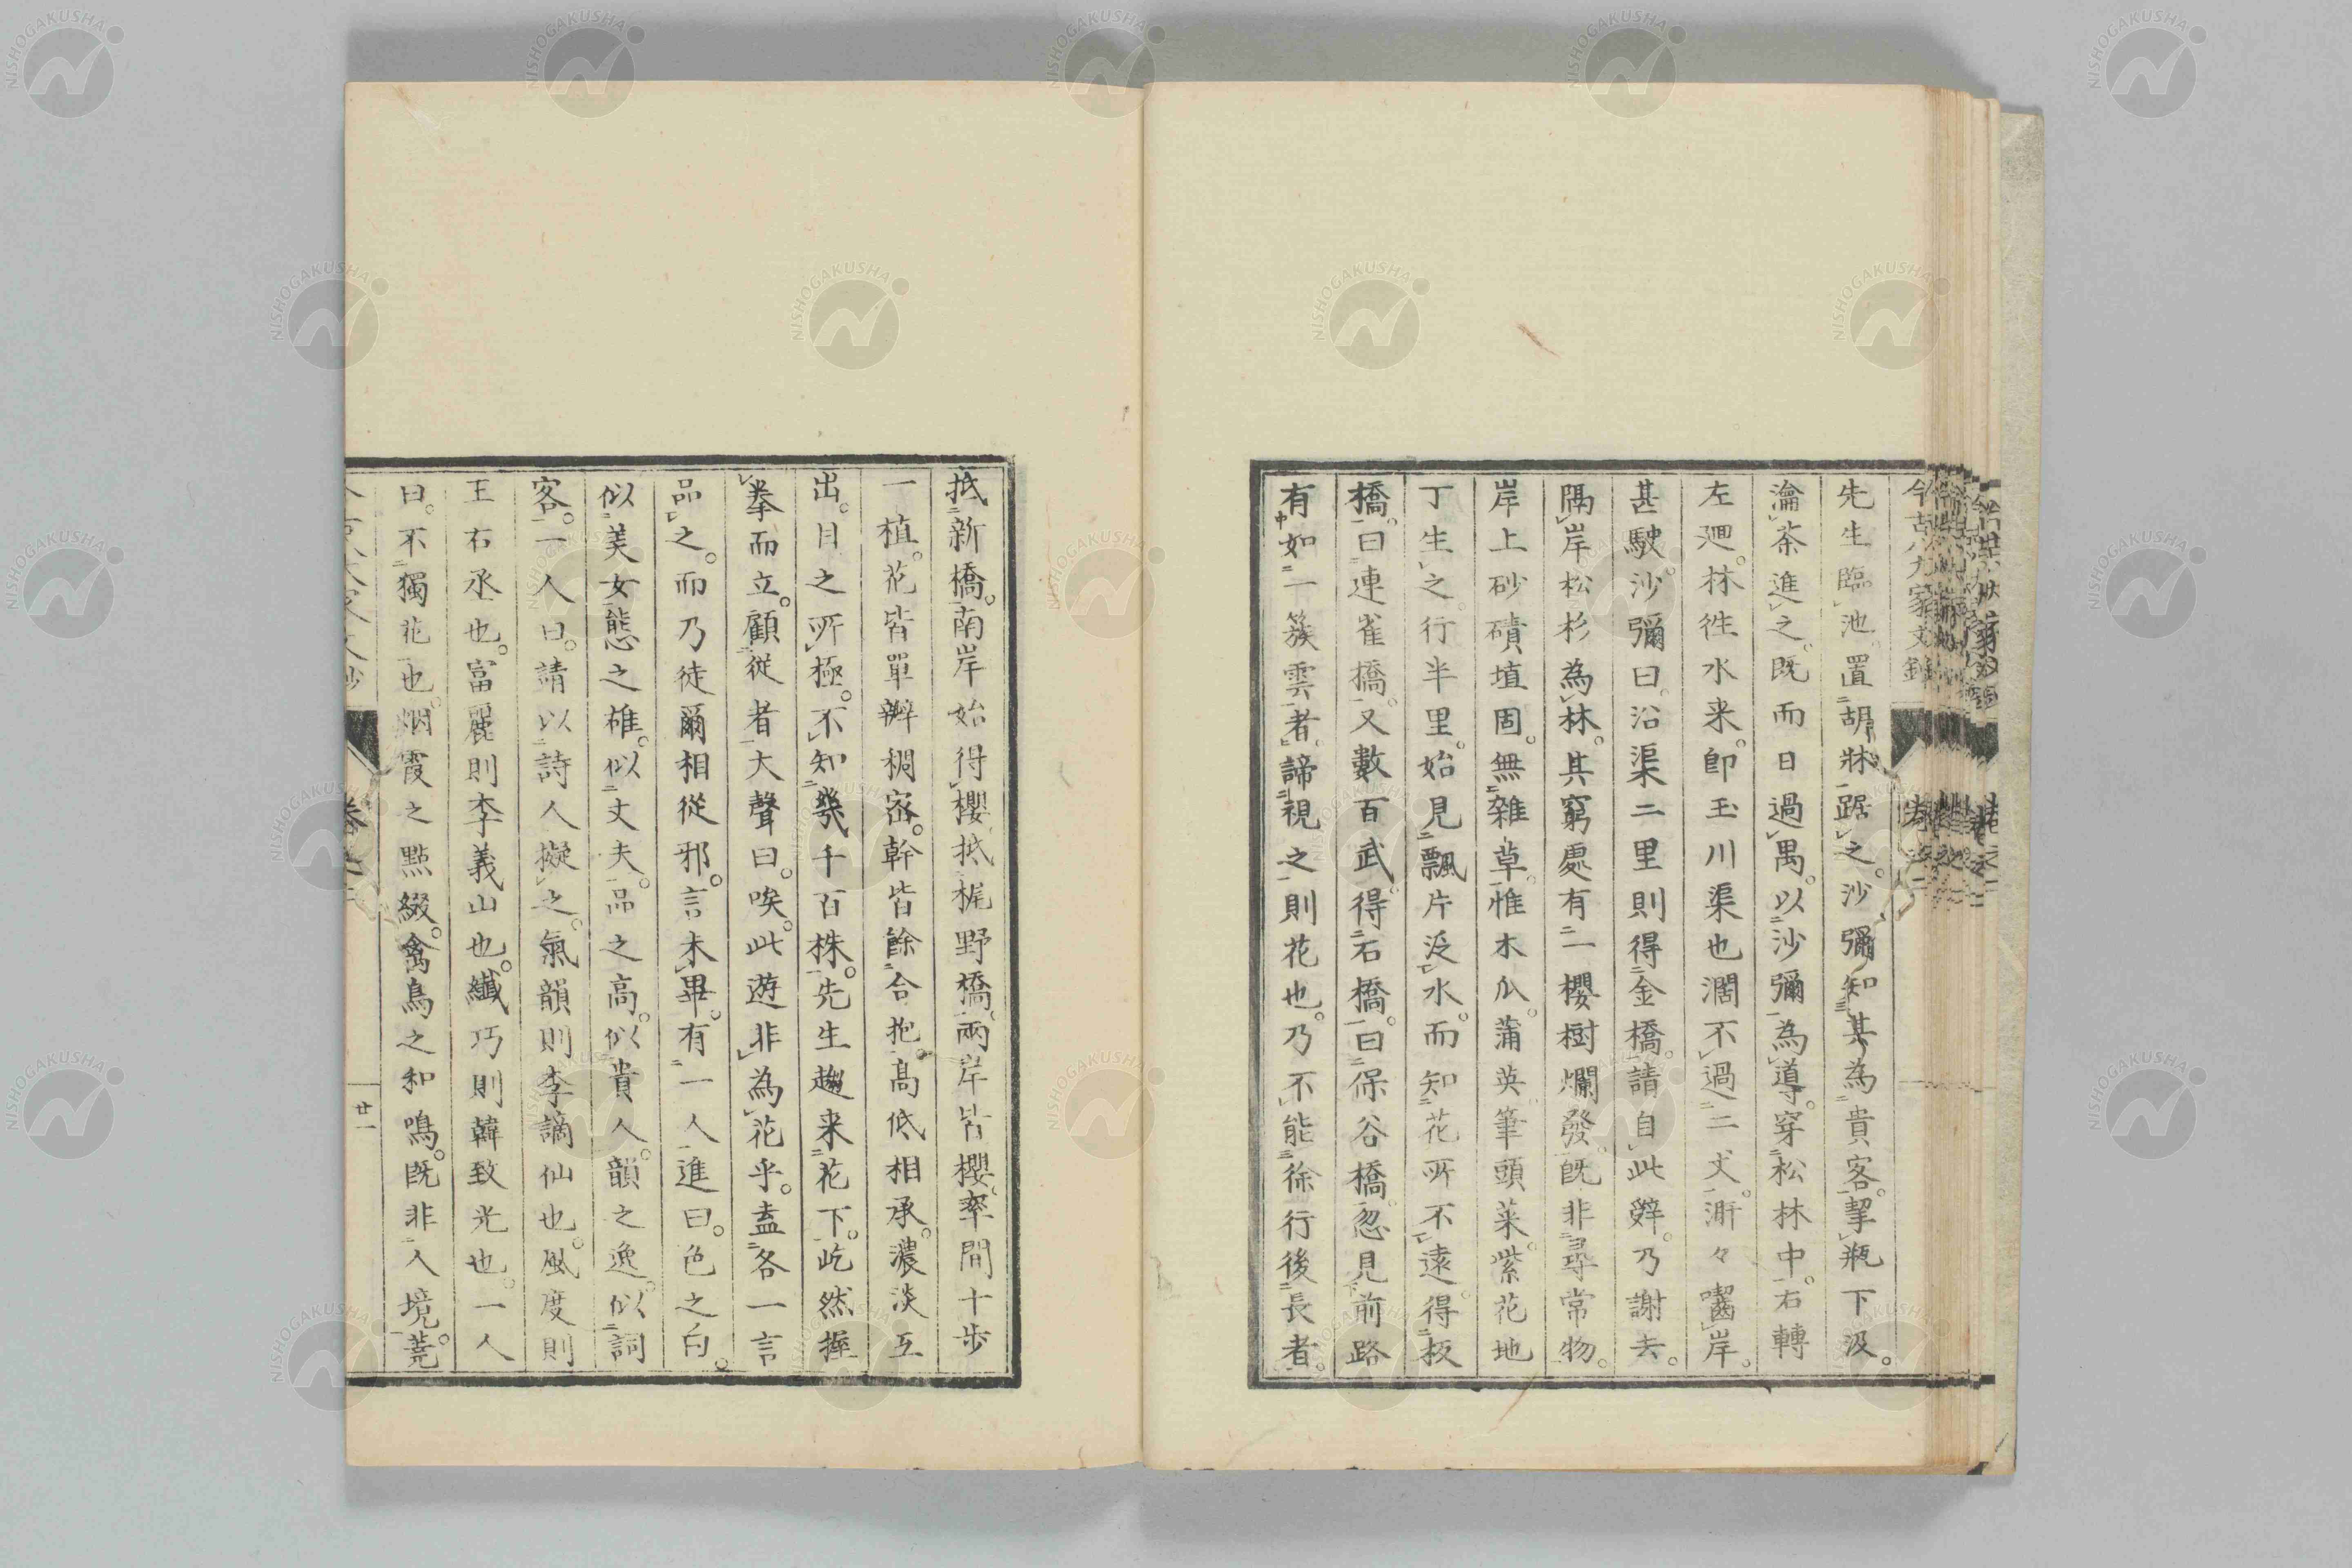 今古八大家文鈔
先生臨池。置胡牀踞之。沙彌知其為貴客。挈瓶下汲。
瀹茶進之。既而日過禺。以沙彌為導。穿松林中。右轉
左廻。林徃水来。卽玉川渠也。濶不過二丈。㴑々囓岸。
甚駛。沙彌曰。沿渠二里則得金橋。請自此辤。乃謝去。
隔岸松杉為林。其窮處有一櫻樹爛發。既非尋常物。
岸上砂磧埴固。無雜草。惟木瓜。蒲英。筆頭菜。紫花地
丁生之。行半里。始見飄片泛水。而知花所不遠。得板
橋。曰連雀橋。又數百武。得石橋。曰保谷橋。忽見前路
有如一簇雲者。諦視之則花也。乃不能徐行後長者。
抵新橋。南岸始得櫻。抵梶野橋。兩岸皆櫻。率間十步
一植。花皆單瓣稠密。幹皆餘合抱。高低相承。濃淡互
出。目之所極。不知幾千百株。先生趣来花下。屹然握
拳而立。顧從者大聲曰。唉。此遊非為花乎。盍各一言
品之。而乃徒爾相從邪。言未畢。有一人進曰。色之白。
似美女。態之雄。似丈夫。品之高。似貴人。韻之逸。似詞
客。一人曰。請以詩人擬之。氣韻則李謫仙也。風度則
王右丞也。富麗則李義山也。纖巧則韓致光也。一人
曰。不獨花也。烟霞之點綴。禽鳥之和鳴。既非人境。蕘
廿一